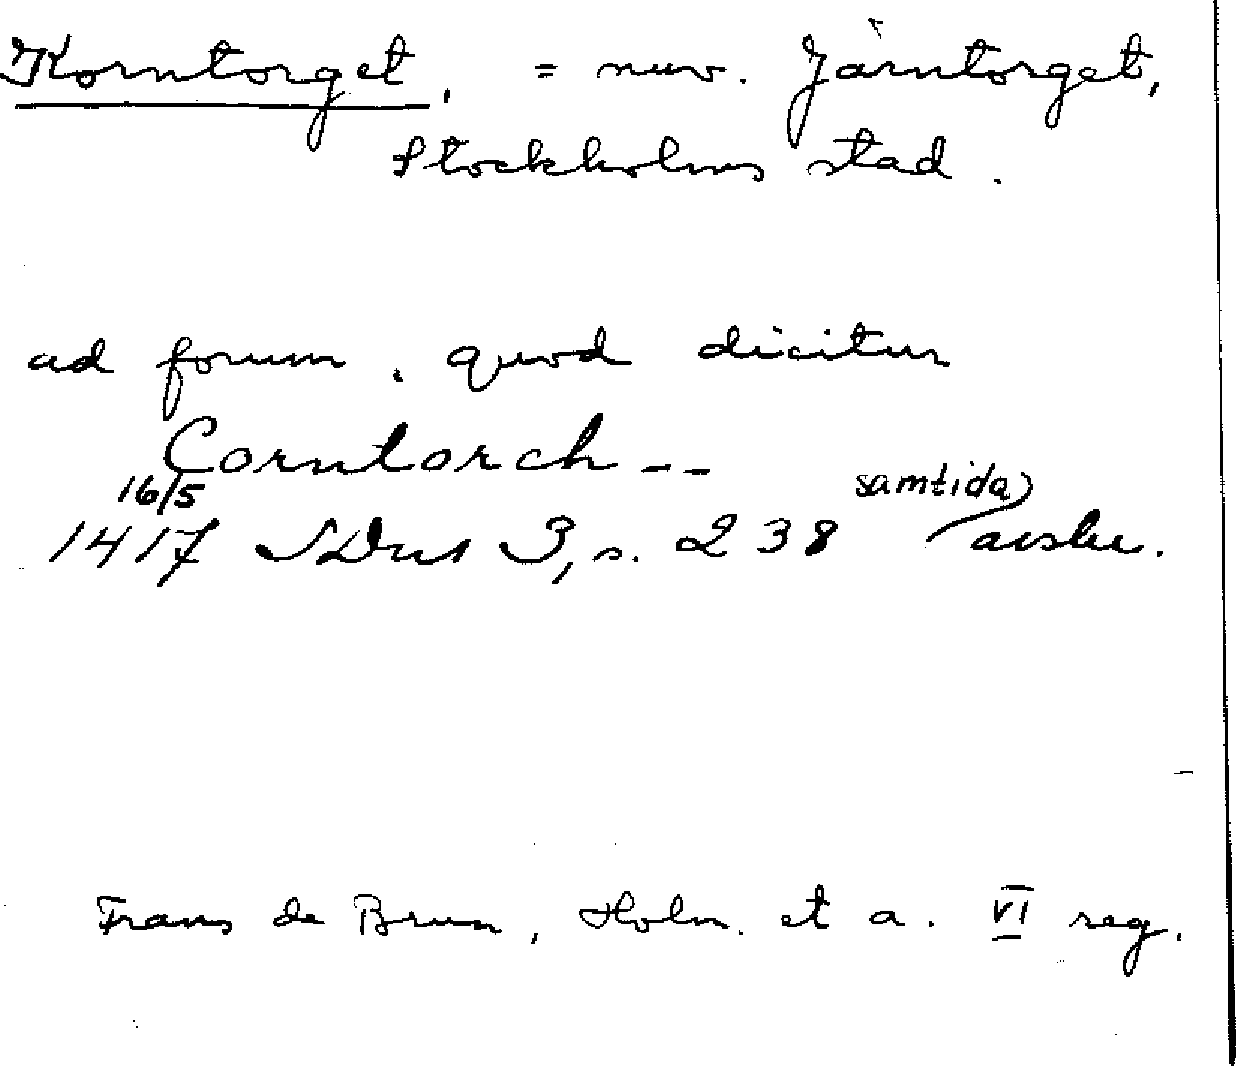 Korntorget, = nuv. Järntorget,
Stockholms stad.
ad forum, quod dicitur
Corntorch --
16/5 samtida
1417 SDns 3, s. 238 avskr.
Frans de Brun, Holm. et a. VI reg.